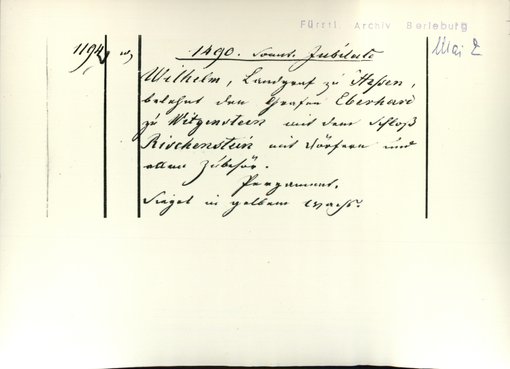 Fürstl. Archiv Berleburg
1194 1490. Sonnt. Jubilate Mai 2
Wilhelm, Landgraf zu Hessen,
belehnt den Grafen Eberhard
zu Witgenstein mit dem Schloß
Rischenstein mit Dörfern und
allem Zubehör.
Pergament.
Siegel in gelbem Wachs.